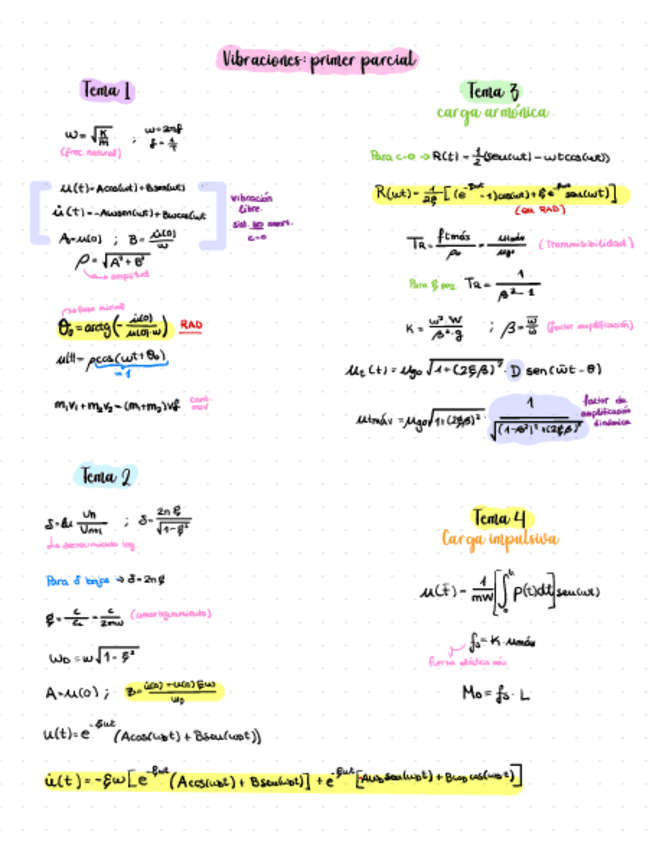 Vibraciones: primer parcial
Tema 1
ω = √(K/m) ; ω = 2πf
f = 1/T
(frec. natural)
u(t) = Acos(ωt) + Bsen(ωt)
u̇(t) = -Aωsen(ωt) + Bωcos(ωt
A = u(0) ; B = u̇(0)/ω
vibración
libre.
sist. no amort.
c=0
ρ = √(A² + B²)
amplitud
fase inicial
θ₀ = arctg(- u̇(0)/(u(0)·ω)) RAD
u(t) = ρcos(ωt + θ₀)
=1
m₁v₁ + m₂v₂ = (m₁+m₂)vf
cant. mov
Tema 2
δ = ln Un/Un+1 ; δ = 2πξ/√(1-ξ²)
decremento log.
Para δ bajos → δ = 2πξ
ξ = c/cc = c/2mω (amortiguamiento)
ωD = ω√(1-ξ²)
A = u(0) ; B = (u̇(0) + u(0)ξω)/ωD
u(t) = e^-ξωt (Acos(ωDt) + Bsen(ωDt))
u̇(t) = -ξω[e^-ξωt (Acos(ωDt) + Bsen(ωDt)] + e^-ξωt [AωDsen(ωDt) + BωDcos(ωDt)]
Tema 3
carga armónica
Para c=0 → R(t) = 1/2 (sen(ωt) - ωtcos(ωt))
R(ωt) = 1/2ξ [(e^-ξωt -1)cos(ωt) + ξe^-ξωt sen(ωt)]
(en RAD)
TR = ftmáx/p₀ = utmáx/ug₀ (Transmisibilidad)
Para ξ peq. TR = 1/(β²-1)
K = ω²·W/(β²·g) ; β = ω̄/ω (factor amplificación)
ut(t) = ug₀ √(1+(2ξβ)²) · D sen(ω̄t - θ)
utmáx = ug₀√(1+(2ξβ)²) · 1/√((1-β²)² + (2ξβ)²)
factor de
amplificación
dinámica
Tema 4
Carga impulsiva
u(t̄) = 1/mW [∫₀ᵗ p(t)dt] sen(ωt)
fs = K · umáx
fuerza elástica máx
M₀ = fs · L